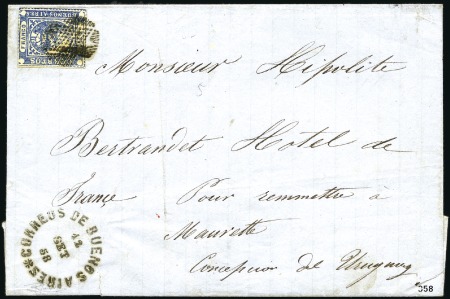 BUENOS AIRES
FRANCO
Monsieur Hipolite
Bertrandet Hotel de
France Pour remmettre à
Maurette
Concepcion del Uruguay
CORREOS DE BUENOS AIRES
12
SET
58
358